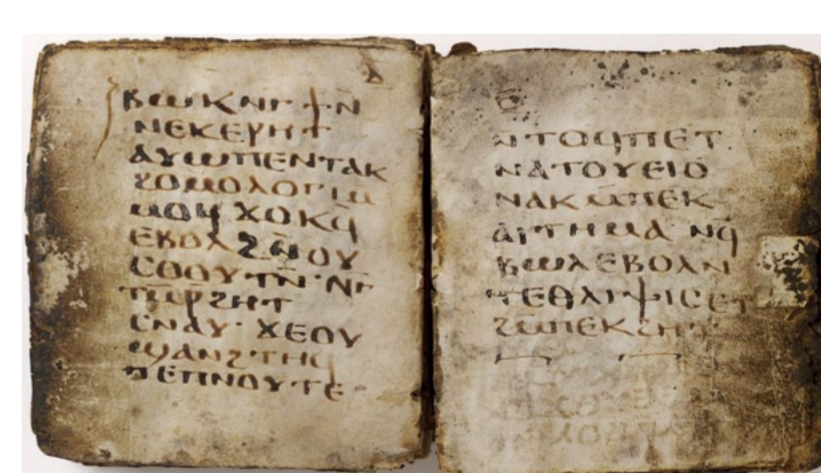 ⲇ̄
ⲃⲱⲕⲛⲅ̄ϯⲛ̄
ⲛⲉⲕⲉⲣⲏⲧ
ⲁⲩⲱⲡⲉⲛⲧⲁⲕ
ϩⲟⲙⲟⲗⲟⲅⲓⲁ
ⲙⲟϥϫⲟⲕϥ̄
ⲉⲃⲟⲗϩⲛ̄ⲟⲩ
ⲥⲟⲟⲩⲧⲛ̄·ⲛⲅ̄
ⲧⲙ̄ⲣ̄ϩⲏⲧ
ⲥⲛⲁⲩ·ϫⲉⲟⲩ
ϣⲁⲛϩⲧⲏϥ
ⲡⲉⲡⲛⲟⲩⲧⲉ
ⲉ̄
ⲛ̄ⲧⲟϥⲡⲉⲧ
ⲛⲁⲧⲟⲩⲉⲓⲟ
ⲛⲁⲕⲙ̄ⲡⲉⲕ
ⲁⲓⲧⲏⲙⲁⲛϥ̄
ⲃⲱⲗⲉⲃⲟⲗⲛ̄
ⲧⲉⲑⲗⲓⲯⲓⲥⲉⲧ
ϩⲙ̄ⲡⲉⲕϩⲏⲧ